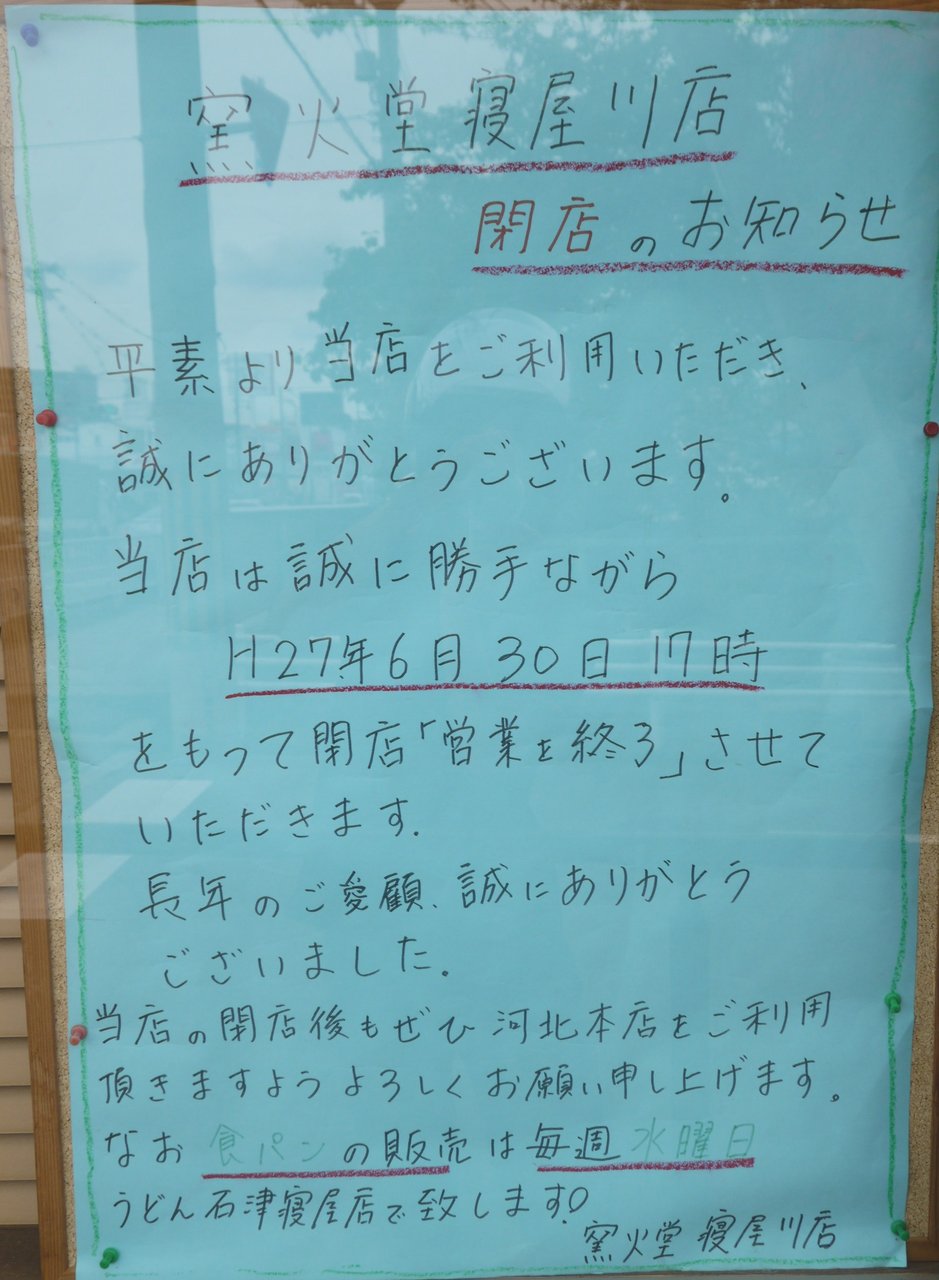 窯火堂寝屋川店
閉店のお知らせ
平素より当店をご利用いただき、
誠にありがとうございます。
当店は誠に勝手ながら
H27年6月30日17時
をもって閉店「営業を終了」させて
いただきます.
長年のご愛顧、誠にありがとう
ございました.
当店の閉店後もぜひ河北本店をご利用
頂きますようよろしくお願い申し上げます。
なお食パンの販売は毎週水曜日
うどん石津寝屋店で致します!
窯火堂 寝屋川店